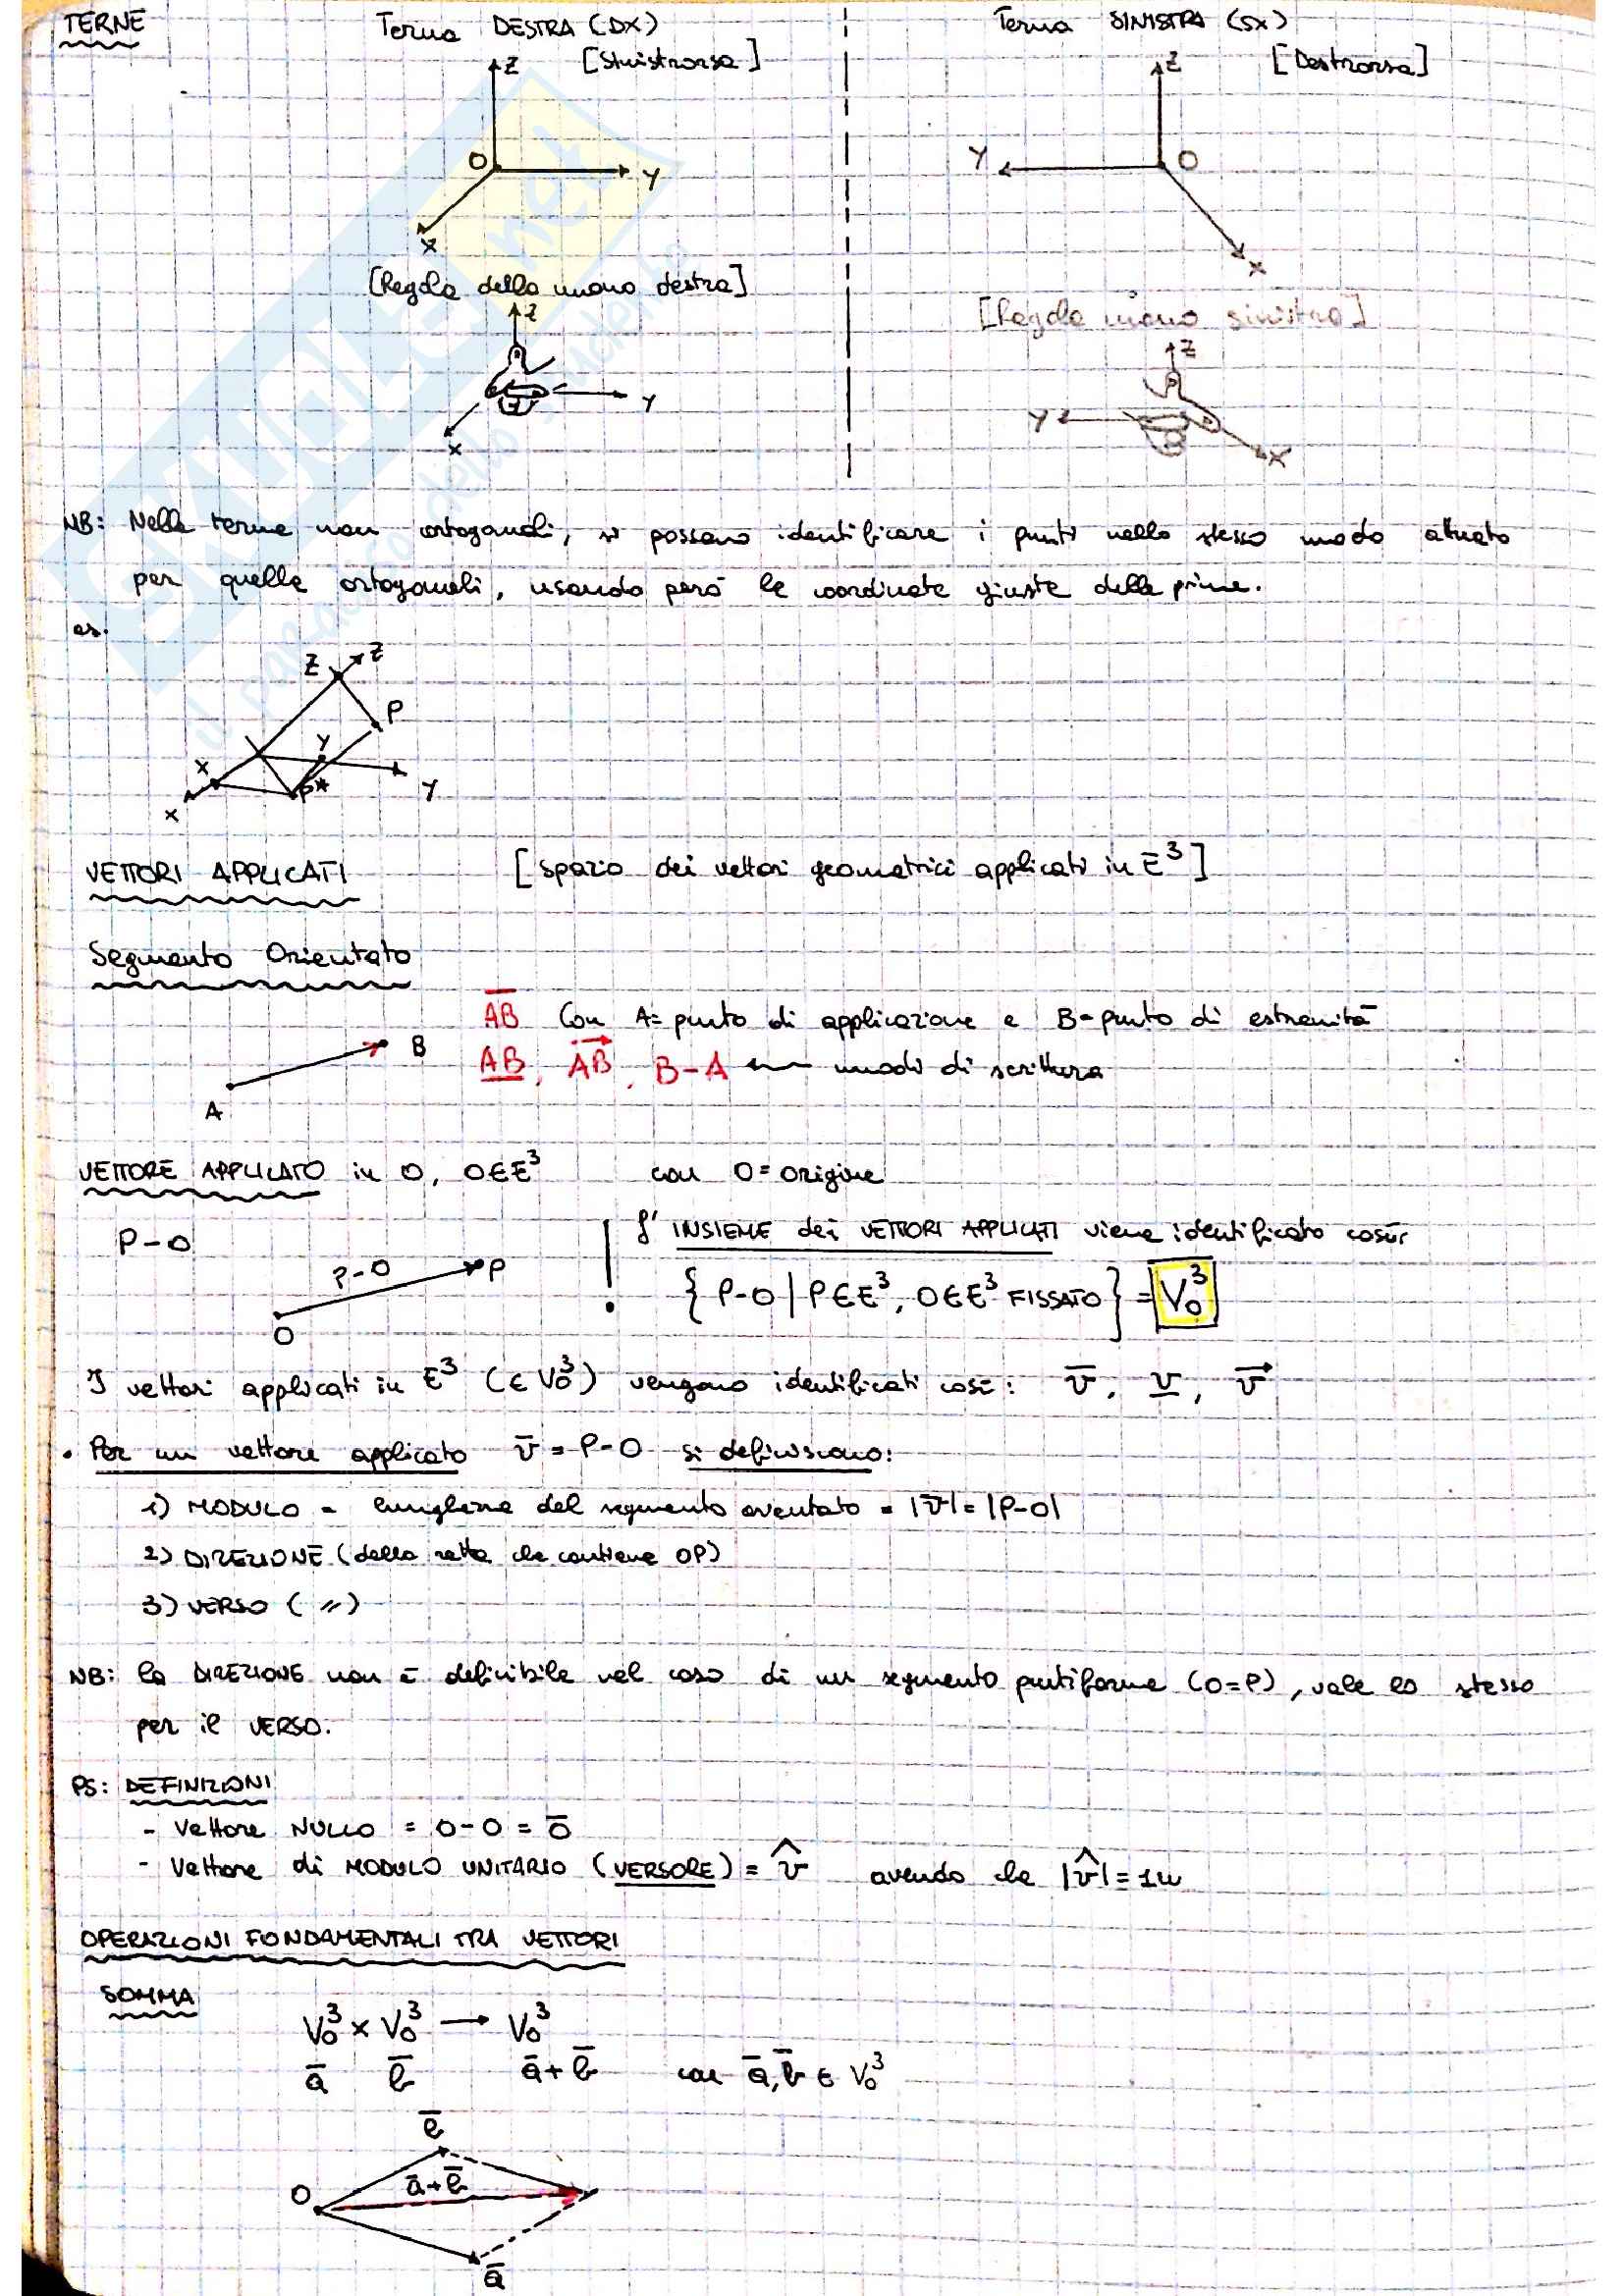 TERNE
Terna DESTRA (DX)
[Sinistrorsa]
Z
O
Y
X
[Regola della mano destra]
Z
Y
X
Terna SINISTRA (SX)
[Destrorsa]
Z
Y
O
X
[Regola mano sinistra]
Z
Y
X
NB: Nelle terne non ortogonali, si possono identificare i punti nello stesso modo attuato
per quelle ortogonali, usando però le coordinate giuste delle prime.
es.
Z Z
P
Y
X
P*
Y
X
VETTORI APPLICATI [spazio dei vettori geometrici applicati in E³]
Segmento Orientato
A B
A̅B̅ Con A= punto di applicazione e B= punto di estremità
A͟B͟, A⃗B⃗, B-A ← modi di scrittura
VETTORE APPLICATO in O, O∈E³ con O= origine
P-O
P-O
P
O
L'INSIEME dei VETTORI APPLICATI viene identificato così:
{ P-O | P∈E³, O∈E³ FISSATO } = V₀³
I vettori applicati in E³ (∈ V₀³) vengono identificati così: v̅, v̲, v⃗
• Per un vettore applicato v̅ = P-O si definiscono:
1) MODULO = lunghezza del segmento orientato = |v̅| = |P-O|
2) DIREZIONE (della retta che contiene OP)
3) VERSO ( 〃 )
NB: la DIREZIONE non è definibile nel caso di un segmento puntiforme (O=P), vale lo stesso
per il VERSO.
PS: DEFINIZIONI
- Vettore NULLO = O-O = o̅
- Vettore di MODULO UNITARIO (VERSORE) = v̂ avendo che |v̂| = 1u
OPERAZIONI FONDAMENTALI TRA VETTORI
SOMMA
V₀³ × V₀³ → V₀³
a̅ b̅ a̅+b̅ con a̅,b̅ ∈ V₀³
b̅
O
a̅+b̅
a̅